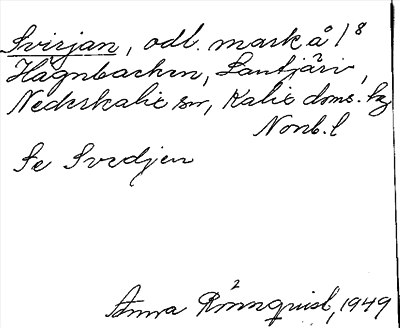 Svisjan, odl. mark å 1⁸
Hagnbacken, Lantjärv,
Nederkalix sn, Kalix doms. hg
Nonb. l
Se Svedjen
Anna Rönnquist, 1949